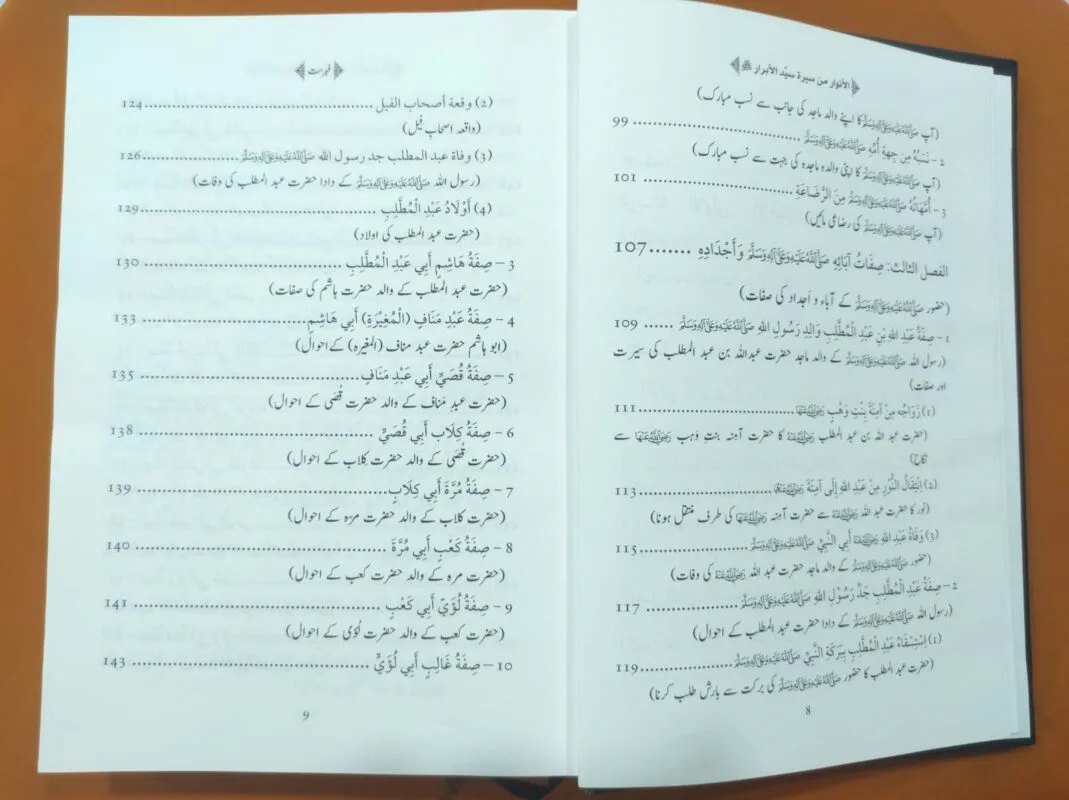 ﴿الأنوار من سيرة سيّد الأبرار ﷺ﴾
(آپ صَلَّى اللهُ عَلَيْهِ وَعَلَى آلِهِ وَسَلَّمَ کا اپنے والد ماجد کی جانب سے نسب مبارک)
2 - نَسَبُهُ مِن جِهةِ أُمِّهِ صَلَّى اللهُ عَلَيْهِ وَعَلَى آلِهِ وَسَلَّمَ ........ 99
(آپ صَلَّى اللهُ عَلَيْهِ وَعَلَى آلِهِ وَسَلَّمَ کا اپنی والدہ ماجدہ کی جہت سے نسب مبارک)
3 - أُمَّهَاتُهُ صَلَّى اللهُ عَلَيْهِ وَعَلَى آلِهِ وَسَلَّمَ مِنَ الرَّضَاعَةِ ........ 101
(آپ صَلَّى اللهُ عَلَيْهِ وَعَلَى آلِهِ وَسَلَّمَ کی رضاعی مائیں)
الفصل الثالث: صِفَاتُ آبَائِهِ صَلَّى اللهُ عَلَيْهِ وَعَلَى آلِهِ وَسَلَّمَ وَأَجْدَادِهِ ....... 107
(حضور صَلَّى اللهُ عَلَيْهِ وَعَلَى آلِهِ وَسَلَّمَ کے آباء و اَجداد کی صفات)
1 - صِفَةُ عَبْدِ اللهِ بْنِ عَبْدِ الْمُطَّلِبِ وَالِدِ رَسُولِ اللهِ صَلَّى اللهُ عَلَيْهِ وَعَلَى آلِهِ وَسَلَّمَ ...... 109
(رسول اللہ صَلَّى اللهُ عَلَيْهِ وَعَلَى آلِهِ وَسَلَّمَ کے والد ماجد حضرت عبداللہ بن عبد المطلب کی سیرت
اور صفات)
(1) زَوَاجُه مِنْ آمِنَةَ بِنْتِ وَهْبٍ رَضِيَ اللهُ عَنْهَا ........ 111
(حضرت عبد اللہ بن عبد المطلب رَضِيَ اللهُ عَنْهُ کا حضرت آمنہ بنتِ وَہب رَضِيَ اللهُ عَنْهَا سے
نکاح)
(2) اِنْتِقَالُ النُّورِ مِنْ عَبْدِ اللهِ إِلَى آمِنَةَ رَضِيَ اللهُ عَنْهُمَا ........ 113
(نُور کا حضرت عبد اللہ رَضِيَ اللهُ عَنْهُ سے حضرت آمنہ رَضِيَ اللهُ عَنْهَا کی طرف منتقل ہونا)
(3) وَفَاةُ عَبْدِ اللهِ رَضِيَ اللهُ عَنْهُ أَبِي النَّبِيِّ صَلَّى اللهُ عَلَيْهِ وَعَلَى آلِهِ وَسَلَّمَ ........ 115
(حضور صَلَّى اللهُ عَلَيْهِ وَعَلَى آلِهِ وَسَلَّمَ کے والد ماجد حضرت عبد اللہ رَضِيَ اللهُ عَنْهُ کی وفات)
2 - صِفَةُ عَبْدِ الْمُطَّلِبِ جَدِّ رَسُوْلِ اللهِ صَلَّى اللهُ عَلَيْهِ وَعَلَى آلِهِ وَسَلَّمَ ........ 117
(رسول اللہ صَلَّى اللهُ عَلَيْهِ وَعَلَى آلِهِ وَسَلَّمَ کے دادا حضرت عبد المطلب کے احوال)
(1) اِسْتِسْقَاءُ عَبْدِ الْمُطَّلِبِ بِبَرَكَةِ النَّبِيِّ صَلَّى اللهُ عَلَيْهِ وَعَلَى آلِهِ وَسَلَّمَ ........ 119
(حضرت عبد المطلب کا حضور صَلَّى اللهُ عَلَيْهِ وَعَلَى آلِهِ وَسَلَّمَ کی برکت سے بارش طلب کرنا)
8
﴿فہرست﴾
(2) وقعة أصحاب الفيل ........ 124
(واقعہ اصحابِ فیل)
(3) وفاة عبد المطلب جد رسول الله صَلَّى اللهُ عَلَيْهِ وَعَلَى آلِهِ وَسَلَّمَ ........ 126
(رسول اللہ صَلَّى اللهُ عَلَيْهِ وَعَلَى آلِهِ وَسَلَّمَ کے دادا حضرت عبد المطلب کی وفات)
(4) أَوْلَادُ عَبْدِ الْمُطَّلِبِ ........ 129
(حضرت عبد المطلب کی اولاد)
3 - صِفَةُ هَاشِمٍ أَبِي عَبْدِ الْمُطَّلِبِ ........ 130
(حضرت عبد المطلب کے والد حضرت ہاشم کی صفات)
4 - صِفَةُ عَبْدِ مَنَافٍ (الْمُغِيْرَةِ) أَبِي هَاشِمٍ ........ 133
(ابو ہاشم حضرت عبد مناف (المغیرہ) کے احوال)
5 - صِفَةُ قُصَيٍّ أَبِي عَبْدِ مَنَافٍ ........ 135
(حضرت عبدِ مَناف کے والد حضرت قُصَی کے احوال)
6 - صِفَةُ كِلَابٍ أَبِي قُصَيٍّ ........ 138
(حضرت قُصَی کے والد حضرت کِلاب کے احوال)
7 - صِفَةُ مُرَّةَ أَبِي كِلَابٍ ........ 139
(حضرت کلاب کے والد حضرت مرّہ کے احوال)
8 - صِفَةُ كَعْبٍ أَبِي مُرَّةَ ........ 140
(حضرت مرہ کے والد حضرت کعب کے احوال)
9 - صِفَةُ لُؤَيٍّ أَبِي كَعْبٍ ........ 141
(حضرت کعب کے والد حضرت لُؤی کے احوال)
10 - صِفَةُ غَالِبٍ أَبِي لُؤَيٍّ ........ 143
9